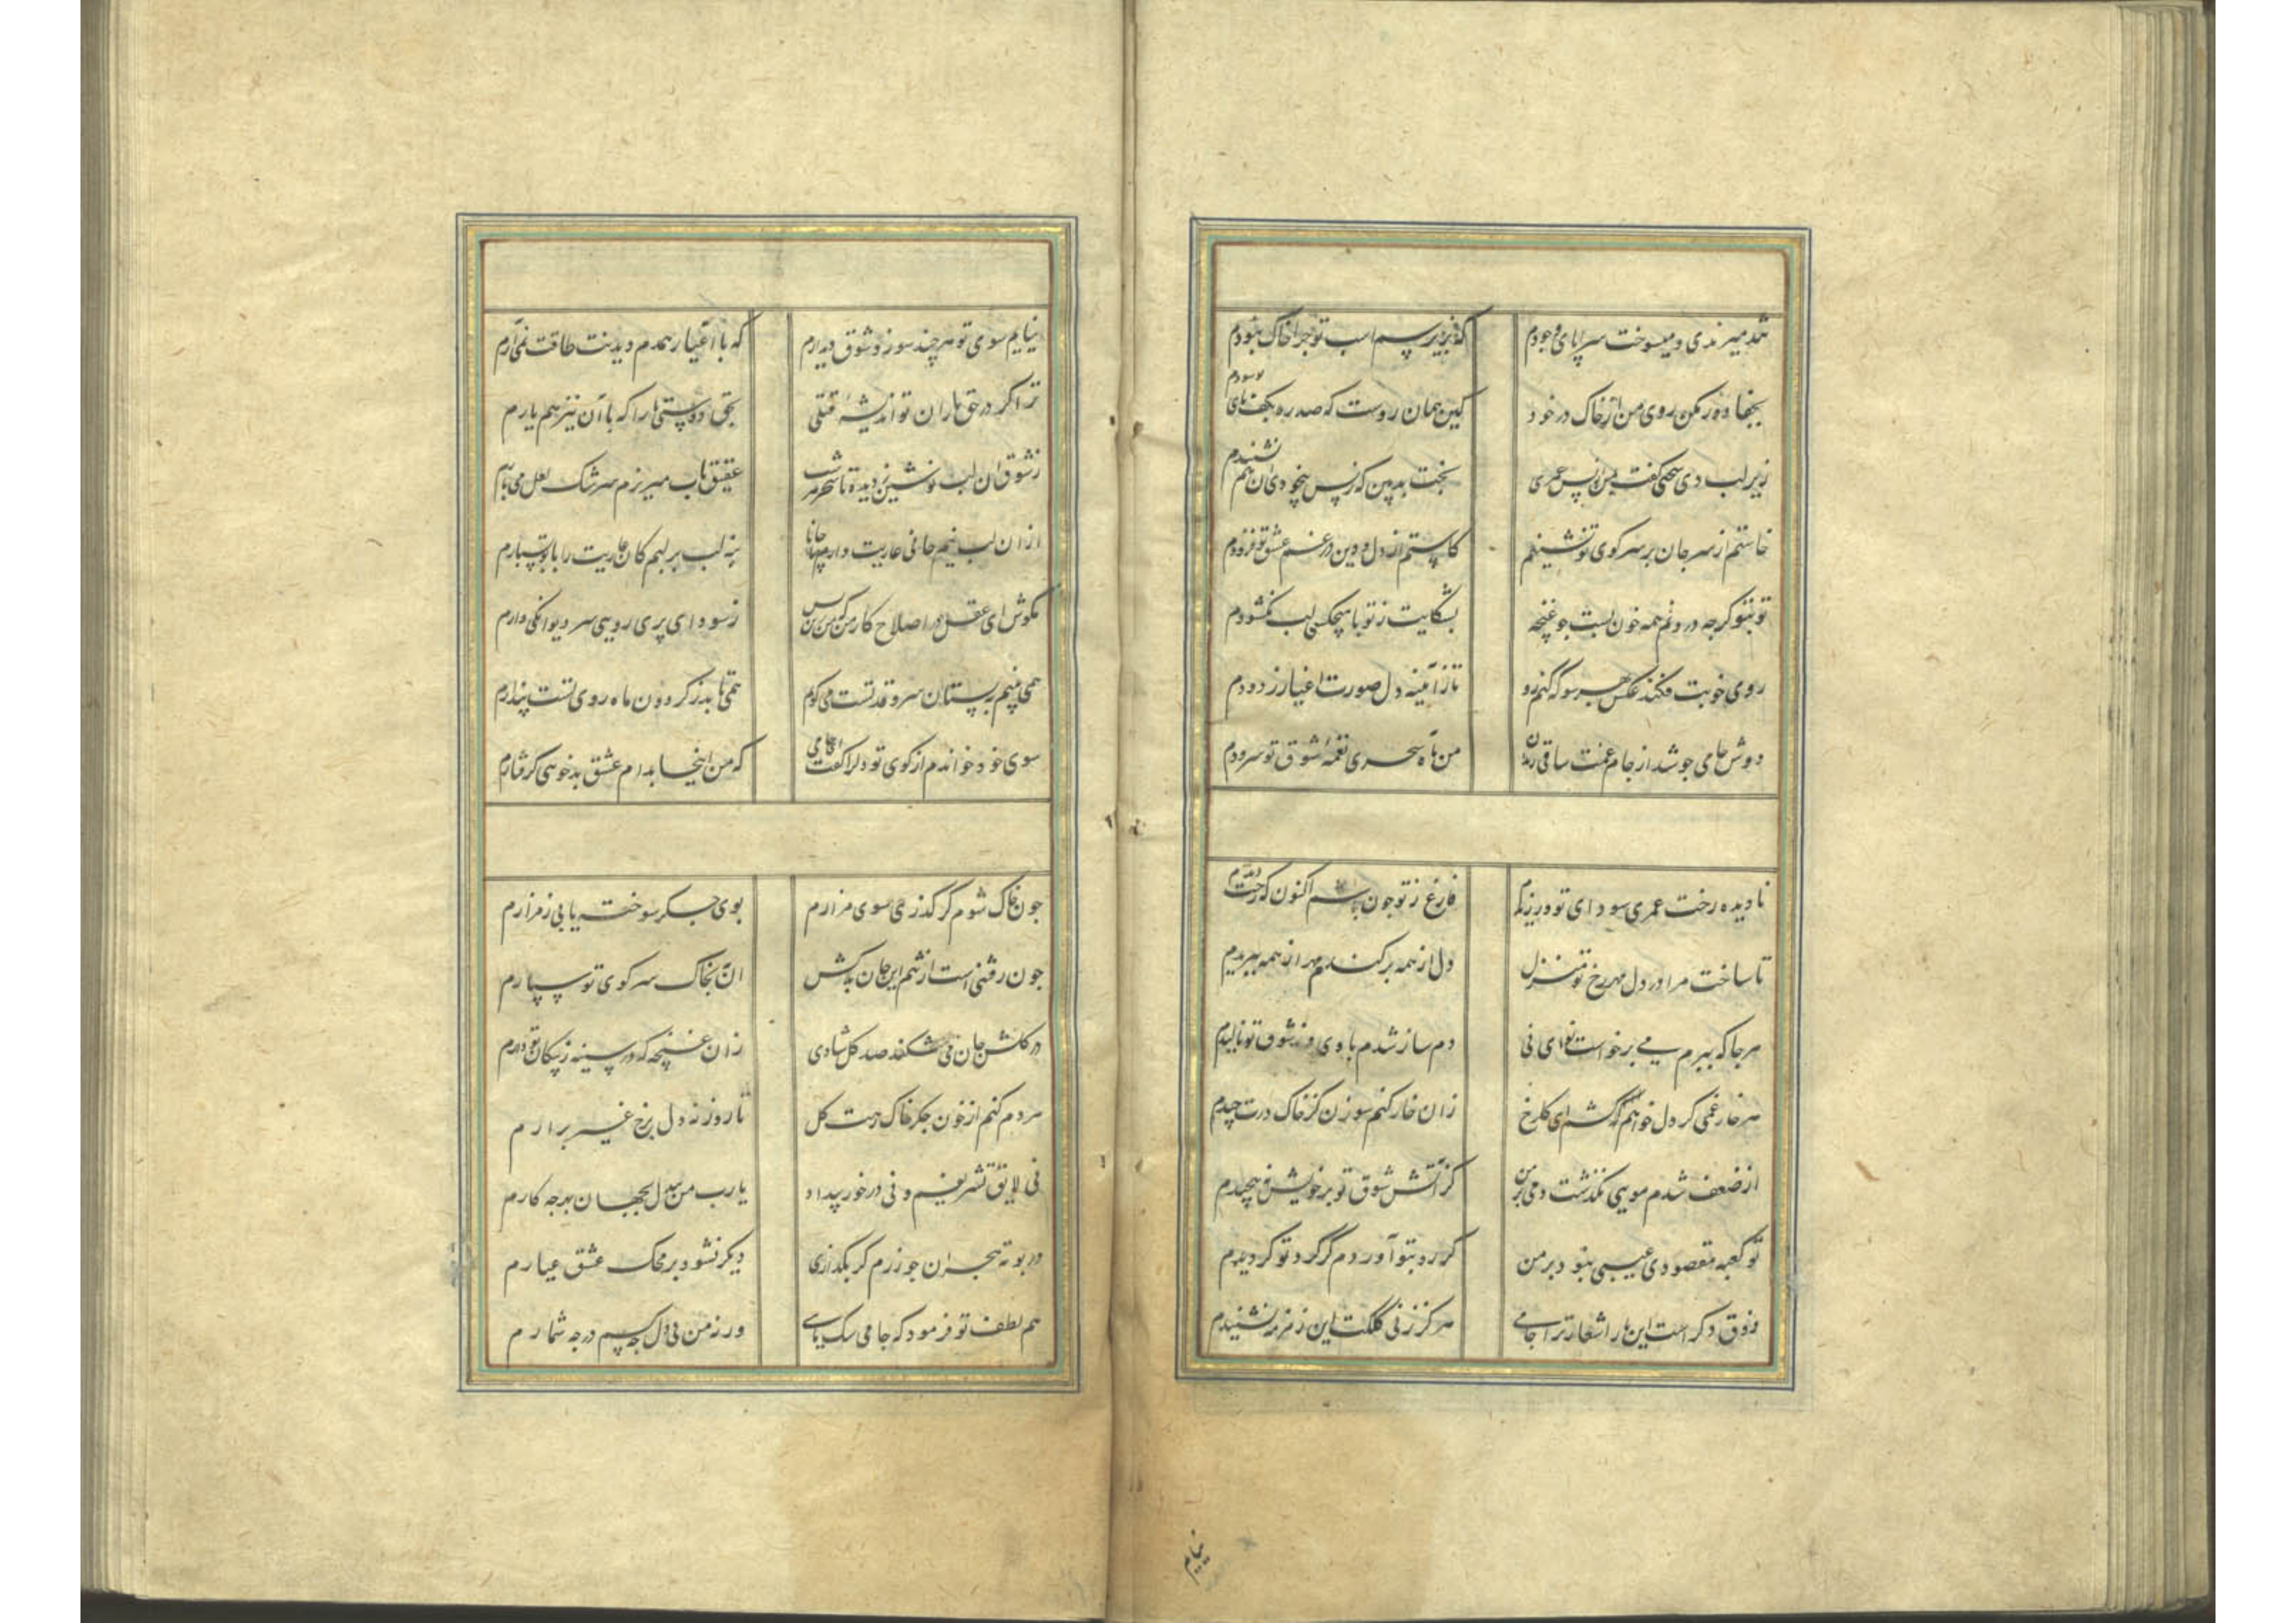 شد میرندی و میسوخت سراپای وجودم که بزیر سم اسب تو چرا خاک نبودم
بجفا دور مکن روی من از خاک در خود کین همان روست که صد ره بکف پای تو سودم
زیر لب دی سخنی گفت بمن از پس عمری بخت بد بین که ز بس بیخودی آن هم نشنیدم
خاستم از سر جان بر سر کوی تو نشینم کاستم از دل و دین در غم عشق تو فزودم
تو بتو کرجه درونم همه خون بست جو غنچه بشکایت ز تو با هیچکسی لب نکشودم
روی خوبت فکند عکس بهر سو که کنم رو تا ز آیینه دل صورت اغیار زدودم
دوش جامی جو شد از جام غمت ساقی رندان من به آه سحری نغمه شوق تو سرودم
نادیده رخت عمری سودای تو ورزیدم فارغ ز تو جون باشم اکنون که رخت دیدم
تا ساخت مرا در دل مهر رخ تو منزل دل از همه برکندم مهر از همه ببریدم
هرجا که ببزم می برخاست نوای نی دم ساز شدم با وی وز شوق تو نالیدم
هر خار غمی کر دل خواهم که کشم ای کلرخ زان خار کنم سوزن کز خاک درت چیدم
از ضعف شدم مویی نکذشت دمی بر من کز آتش شوق تو بر خویش نپیچیدم
تو کعبه مقصودی عیبی نبود بر من کر رو بتو آوردم کر کرد تو کردیدم
ذوق دکر است این بار اشعار ترا جامی هرکز ز نی کلکت این زمزمه نشنیدم
نیایم
نیایم سوی تو هر چند سوز و شوق دیدارم که با اغیار همدم دیدنت طاقت نمی آرم
ترا کر در حق یاران تو اندیشه قتلی بحق دوستی ها را که با آن نیز هم یارم
ز شوق آن لب نوشین ز دیده تا سحر هر شب عقیق ناب میریزم سرشک لعل می بارم
از آن لب نیم جانی عاریت دارم بیا جانا بنه لب بر لبم کان عاریت را با تو بسپارم
مکوش ای عقل در اصلاح کار من که من زین بس ز سودای پری رویی سر دیوانکی دارم
همی بینم ببستان سرو قد تست می کویم همی تابد ز کردون ماه روی تست پندارم
سوی خود خواندم از کوی تو دل را کفت ای جامی که من اینجا بدام عشق بدخویی کرفتارم
جون خاک شوم کر کذری سوی مزارم بوی جکر سوخته یابی ز مزارم
جون رفتنی است از تنم این جان بلاکش آن به بخاک سر کوی تو سپارم
در کلشن جان می شکفد صد کل شادی زان غنچه که در سینه ز پیکان تو دارم
هر دم کنم از خون جکر خاک رهت کل تا روزنه دل برخ غیر برارم
نی لایق تشریفم و نی درخور بیداد یارب من بیدل بجهان بهر چه کارم
در بوته هجران جو زرم کر بکدازی دیکر نشود بر محک عشق عیارم
هم لطف تو فرمود که جامی سک مایی ورنه من بی دل چه کسم در چه شمارم